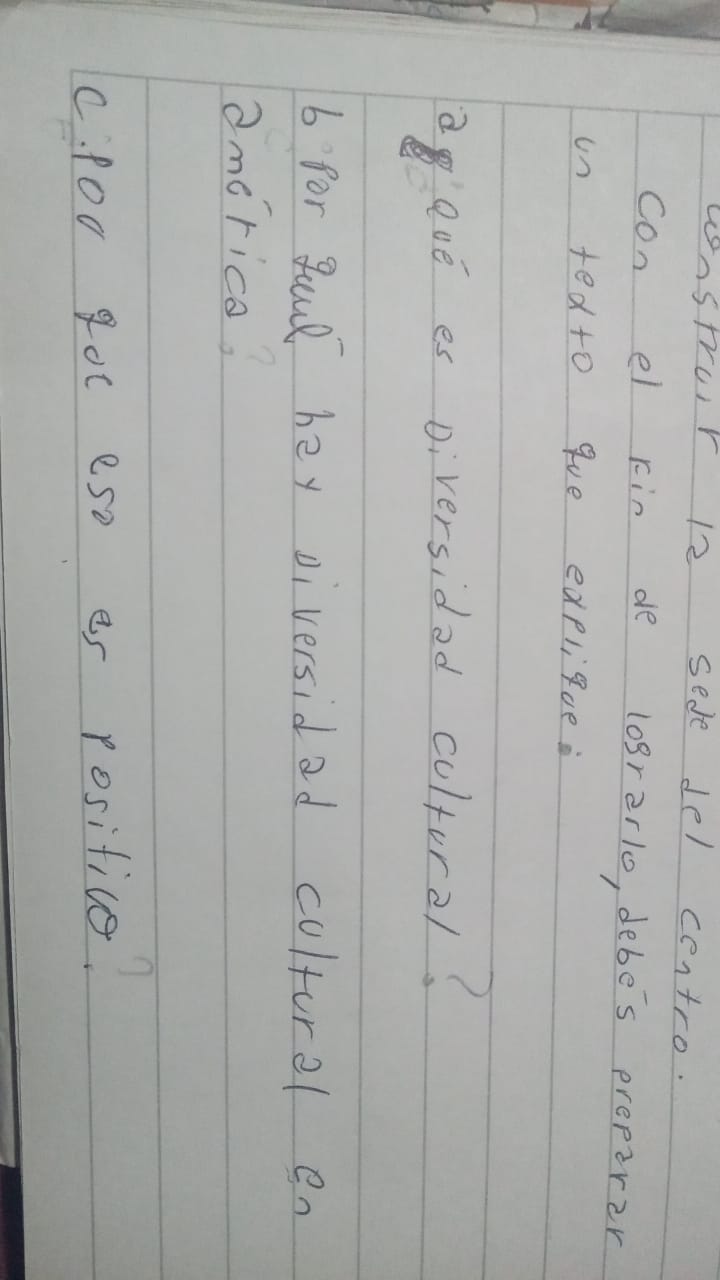 construir la sede del centro.
Con el fin de lograrlo, debés preparar
un texto que explique:
a ¿Qué es Diversidad cultural?
b Por qué hay Diversidad cultural en
América?
c. Por que eso es positivo?